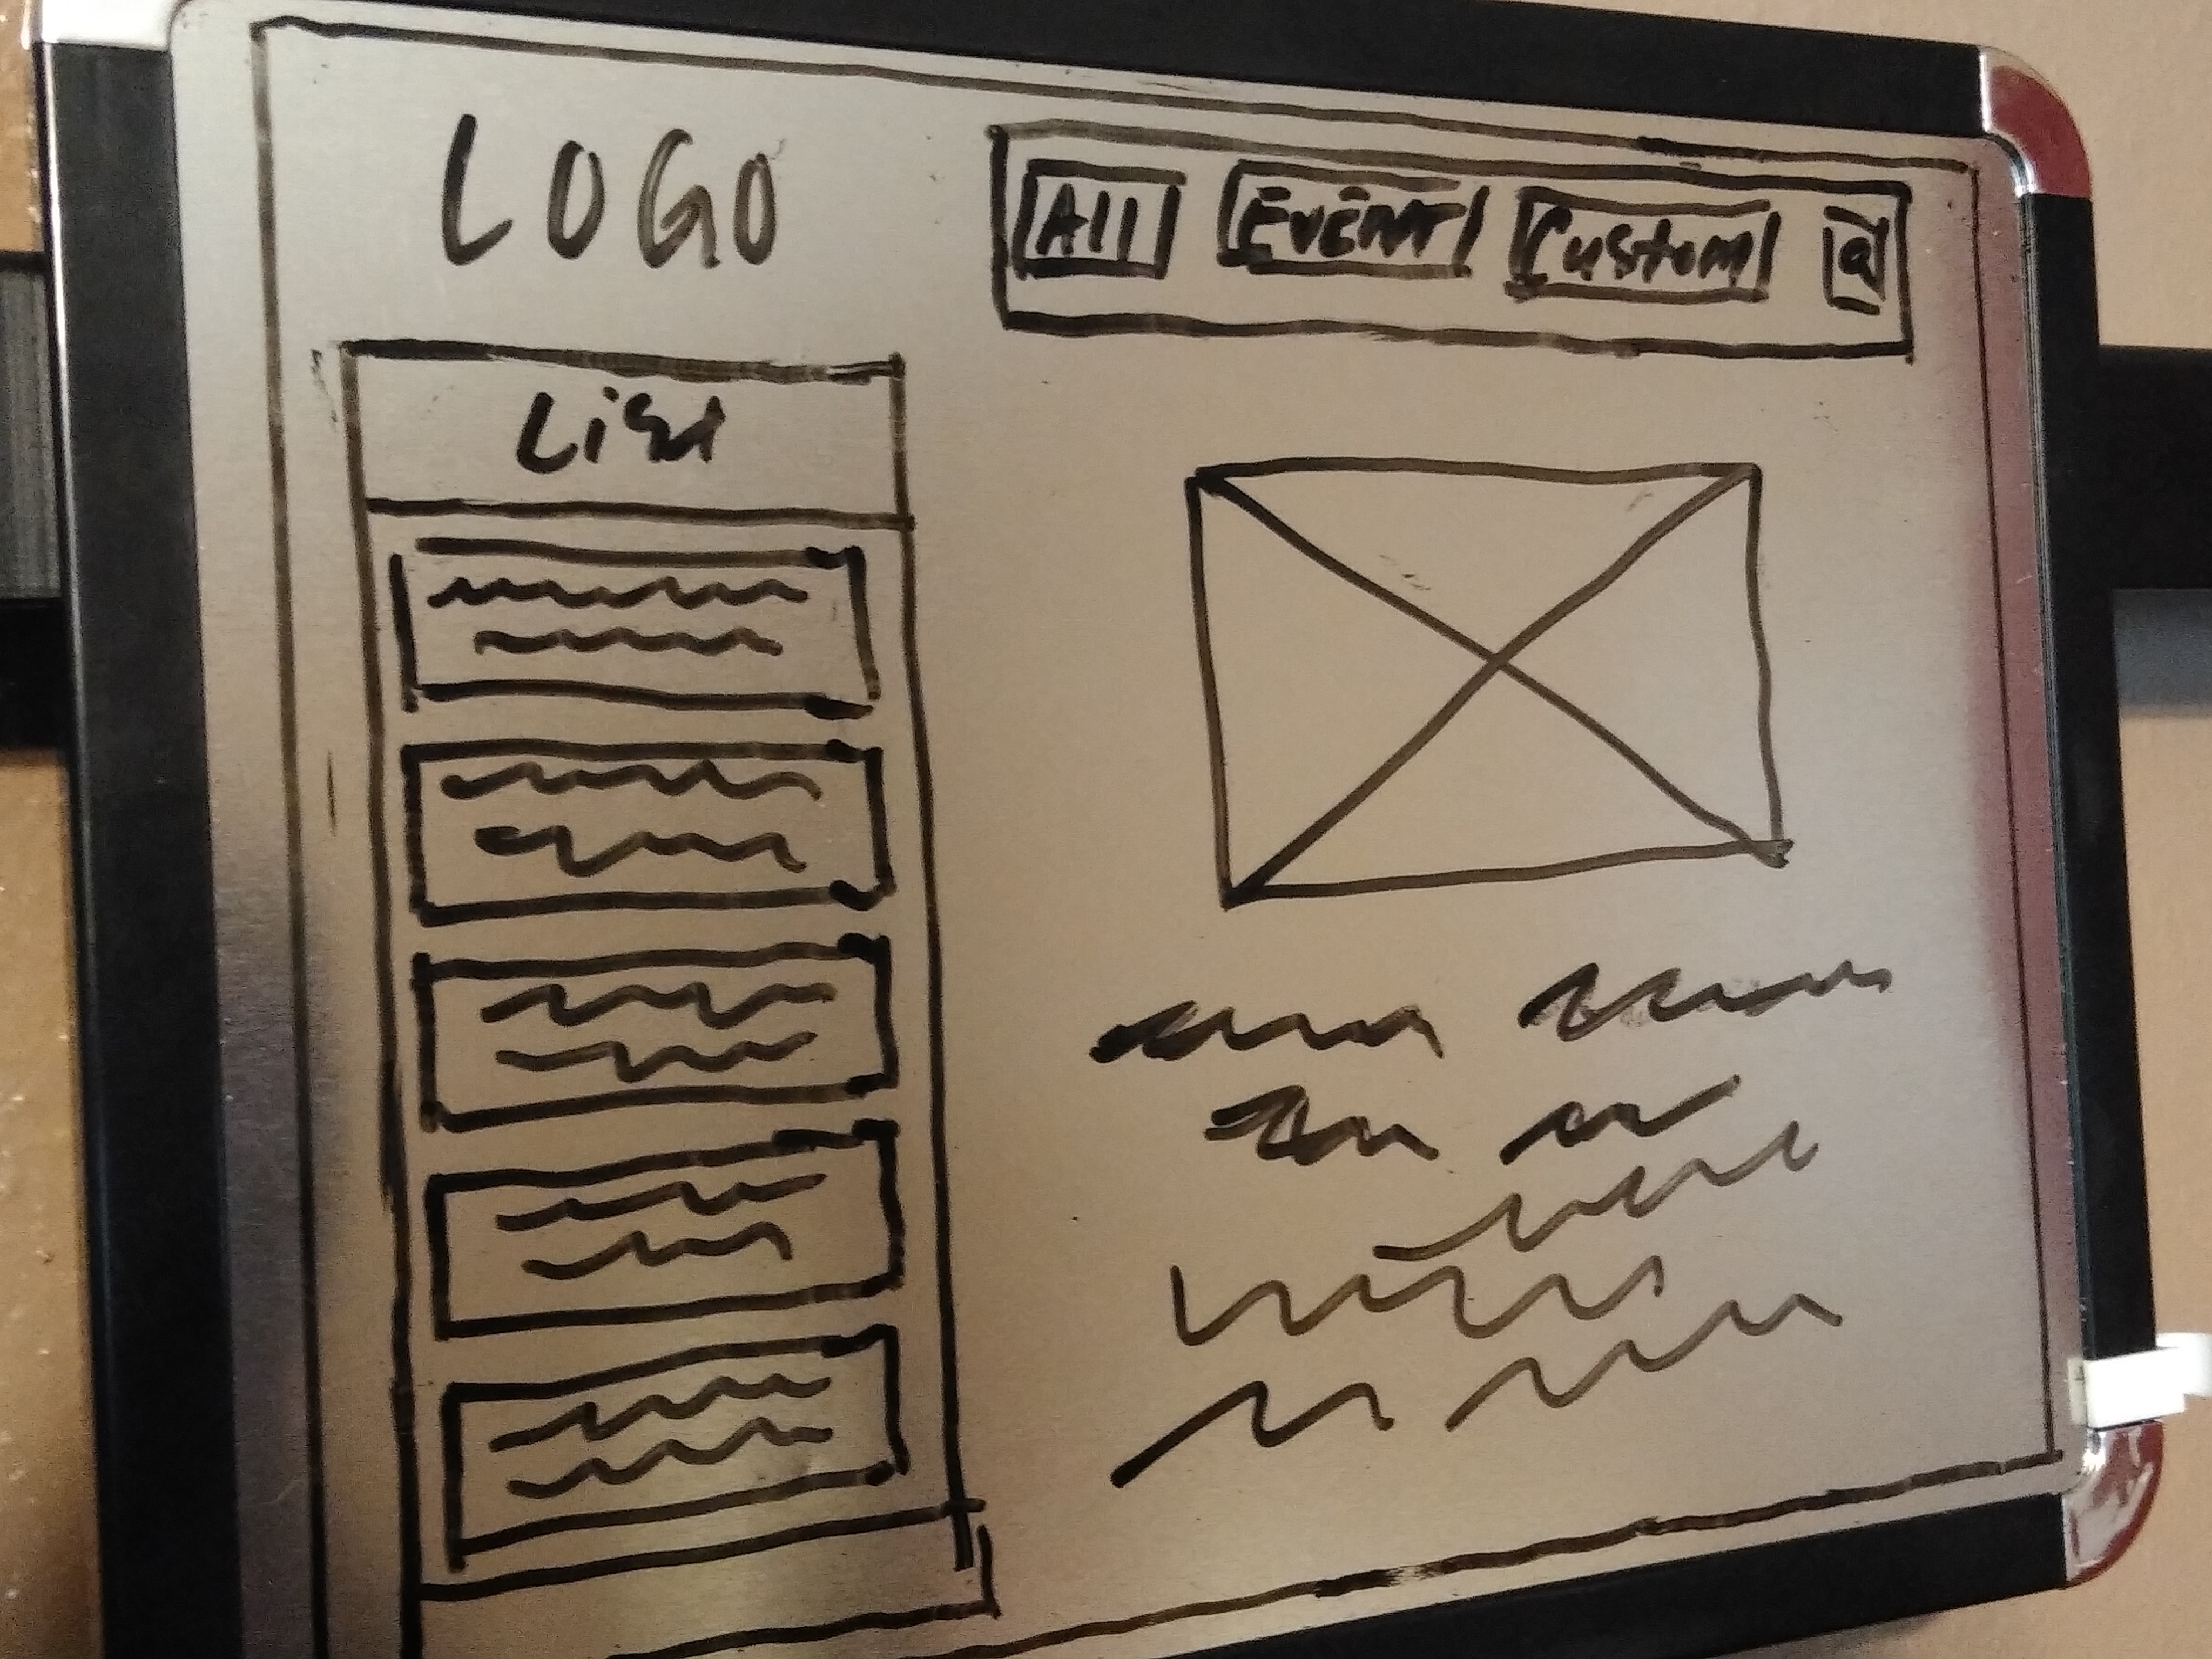 LOGO
All EVENT Custom @
List